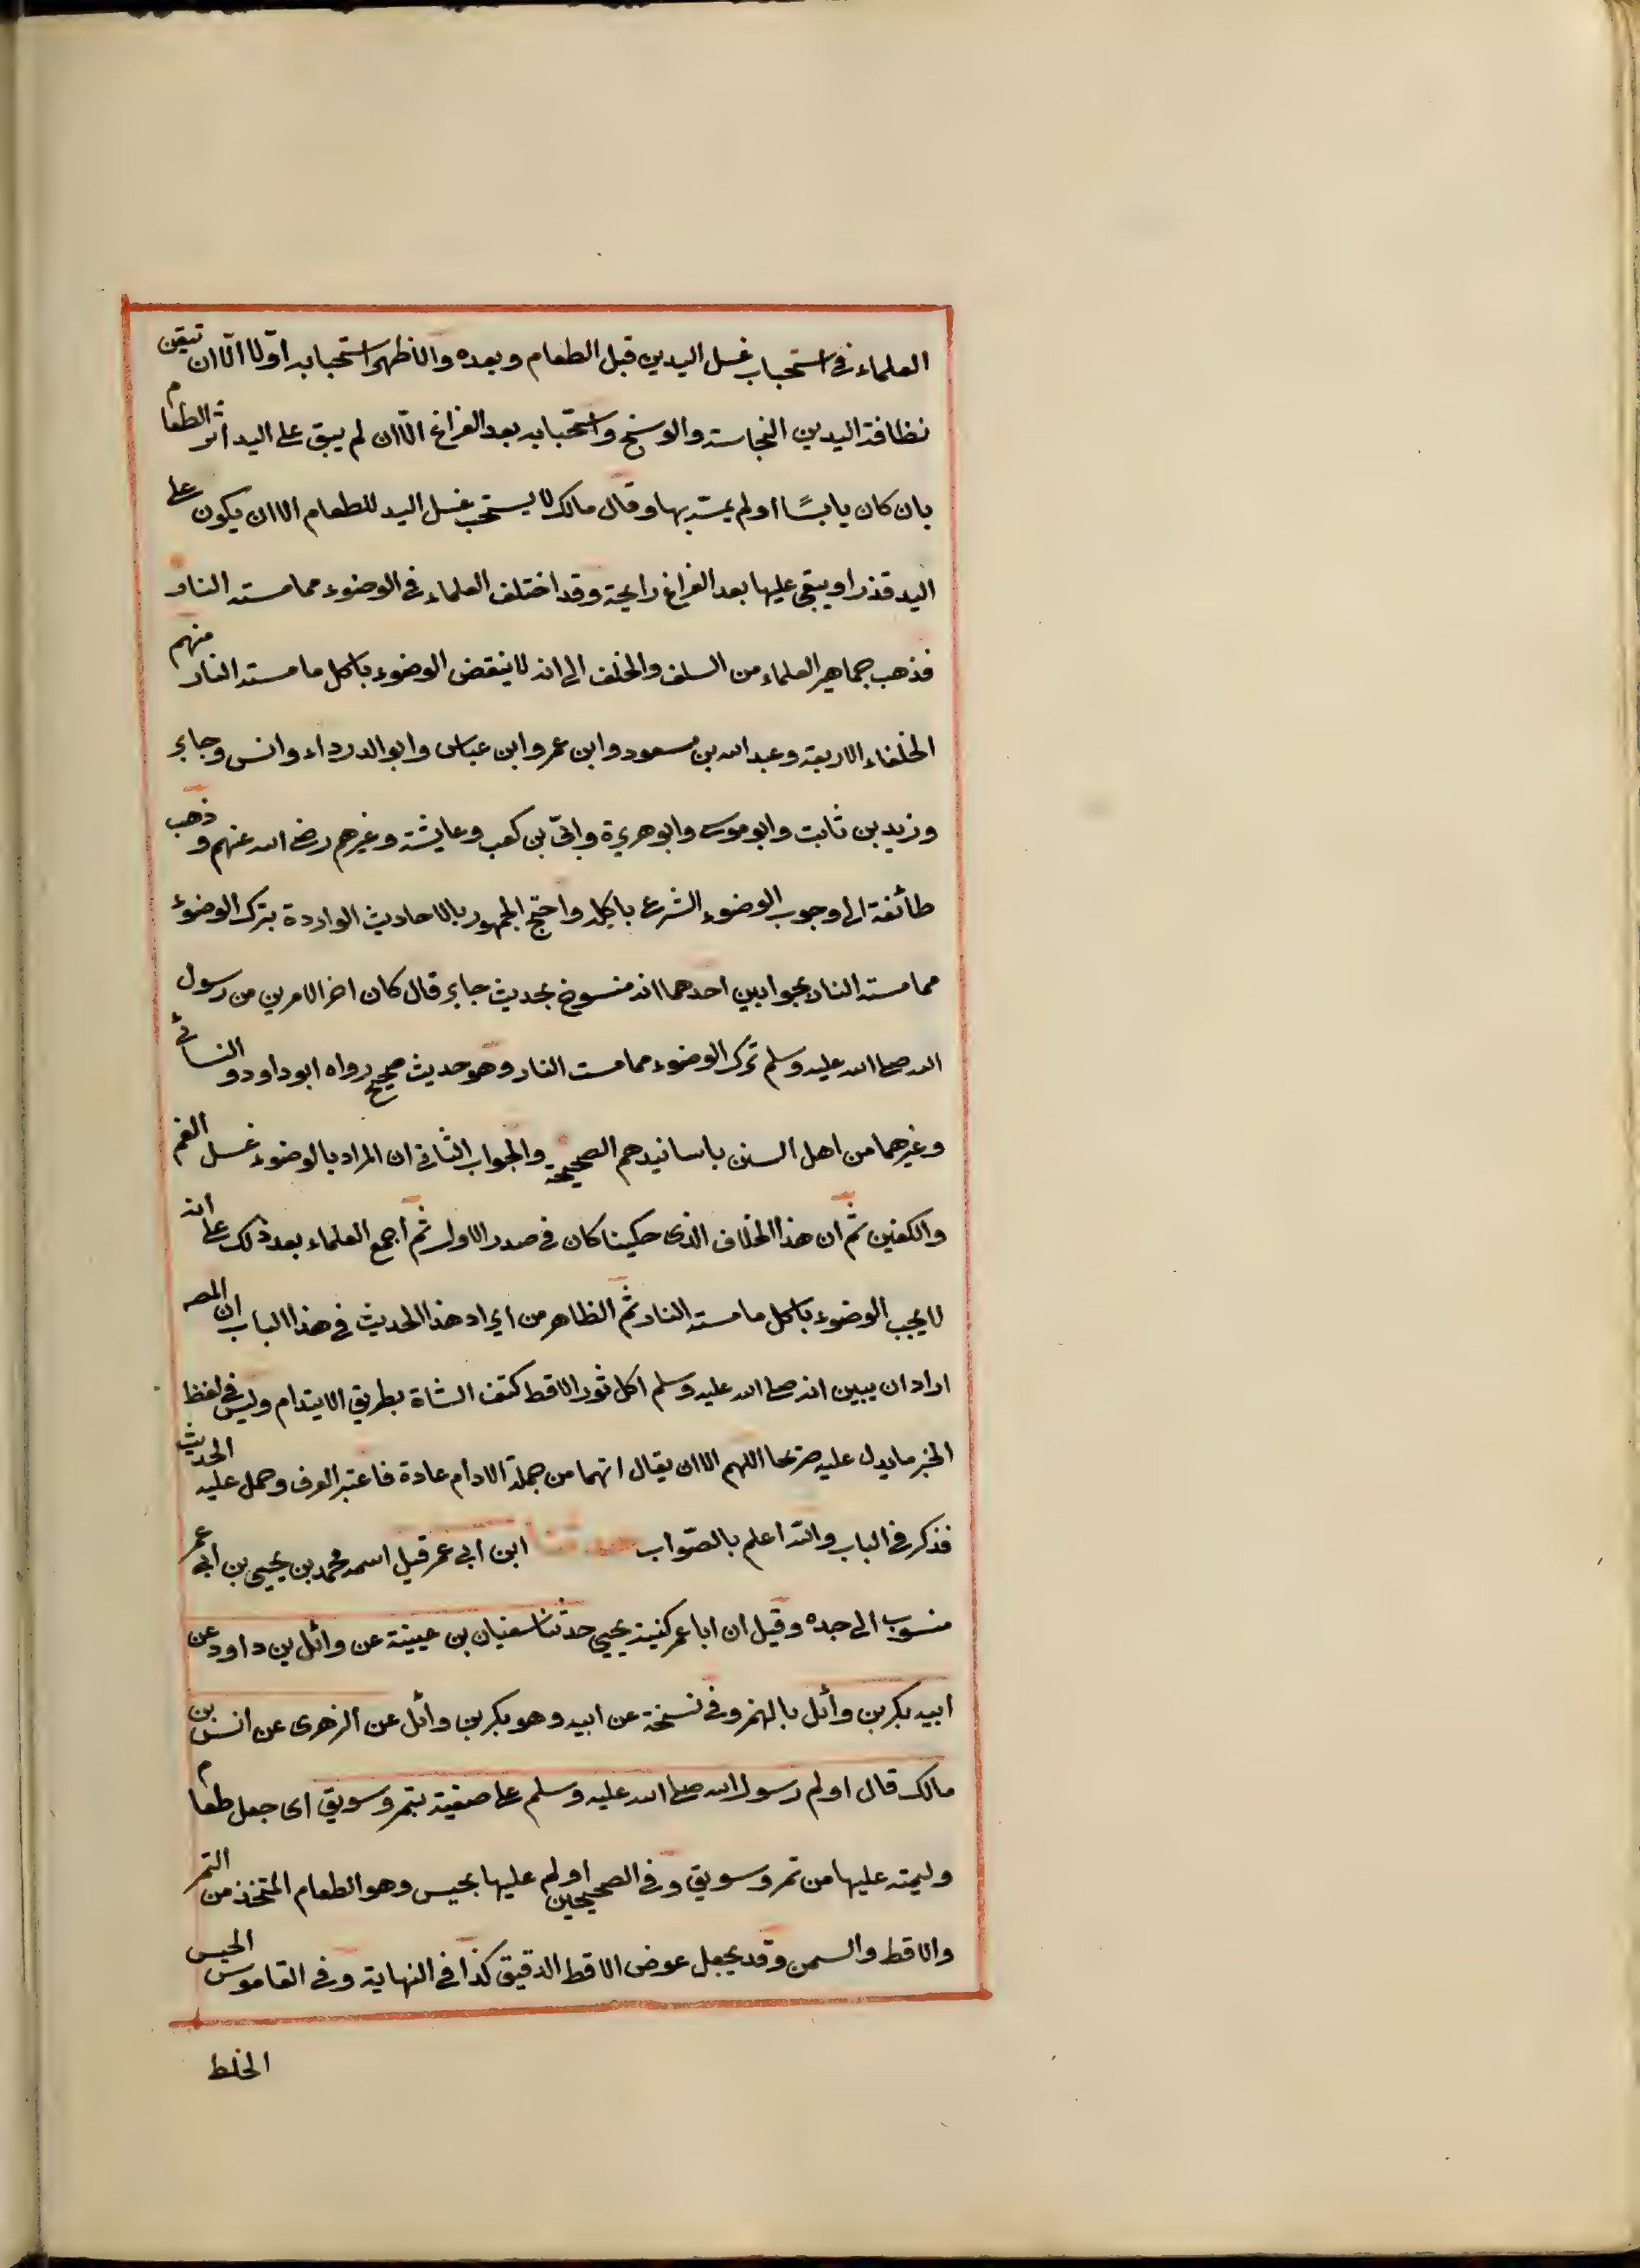 العلماء فى استحباب غسل اليدين قبل الطعام وبعده والاظهر استحبابه اوّلا الّا ان تيقن
نظافة اليدين النجاسة والوسخ واستحبابه بعد الفراغ الّا ان لم يبق على اليد اثر الطعام
بان كان يابسًا اولم يمسّه بها وقال مالك لا يستحب غسل اليد للطعام الا ان يكون على
اليد قذر او يبقى عليها بعد الفراغ رايحة وقد اختلف العلماء فى الوضوء مما مسته النار
فذهب جماهير العلماء من السلف والخلف الى انه لا ينقض الوضوء باكل ما مسته النار منهم
الخلفاء الاربعة وعبد الله بن مسعود وابن عمر وابن عباس وابو الدرداء وانس وجابر
وزيد بن ثابت وابو موسى وابو هريرة وابىّ بن كعب وعايشة وغيرهم رضى الله عنهم وذهب
طائفة الى وجوب الوضوء الشرعى باكله واحتج الجمهور بالاحاديث الواردة بترك الوضوء
مما مسته النار بجوابين احدهما انه منسوخ بحديث جابر قال كان اخر الامرين من رسول
الله صلى الله عليه وسلم ترك الوضوء مما مست النار وهو حديث صحيح رواه ابو داود والنسائى
وغيرهما من اهل السنن باسانيدهم الصحيحة والجواب الثانى ان المراد بالوضوء غسل الفم
والكفين ثم ان هذا الخلاف الذى حكينا كان فى صدر الاول ثم اجمع العلماء بعد ذلك على انه
لا يجب الوضوء باكل ما مسته النار ثم الظاهر من ايراد هذا الحديث فى هذا الباب ان المصـ
اراد ان يبين انه صلى الله عليه وسلم اكل ثور الاقط كتف الشاة بطريق الايتدام وليس فى لفظ
الخبر ما يدل عليه صريحا اللهم الا ان يقال انهما من جملة الادام عادة فاعتبر العرف وحمل عليه الحديث
فذكر فى الباب والله اعلم بالصّواب حدثنا ابن ابى عمر قيل اسمه محمد بن يحيى بن ابى عمر
منسوب الى جده وقيل ان ابا عمر كنية يحيى حدثنا سفيان بن عيينة عن وائل بن داود عن
ابيه بكر بن وائل بالهمز وفى نسخة عن ابيه وهو بكر بن وائل عن الزهرى عن انس بن
مالك قال اولم رسول الله صلى الله عليه وسلم على صفية بتمر وسويق اى جعل طعام
وليمته عليها من تمر وسويق وفى الصحيحين اولم عليها بحيس وهو الطعام المتخذ من التمر
والاقط والسمن وقد يجعل عوض الاقط الدقيق كذا فى النهاية وفى القاموس الحيس
الخلط